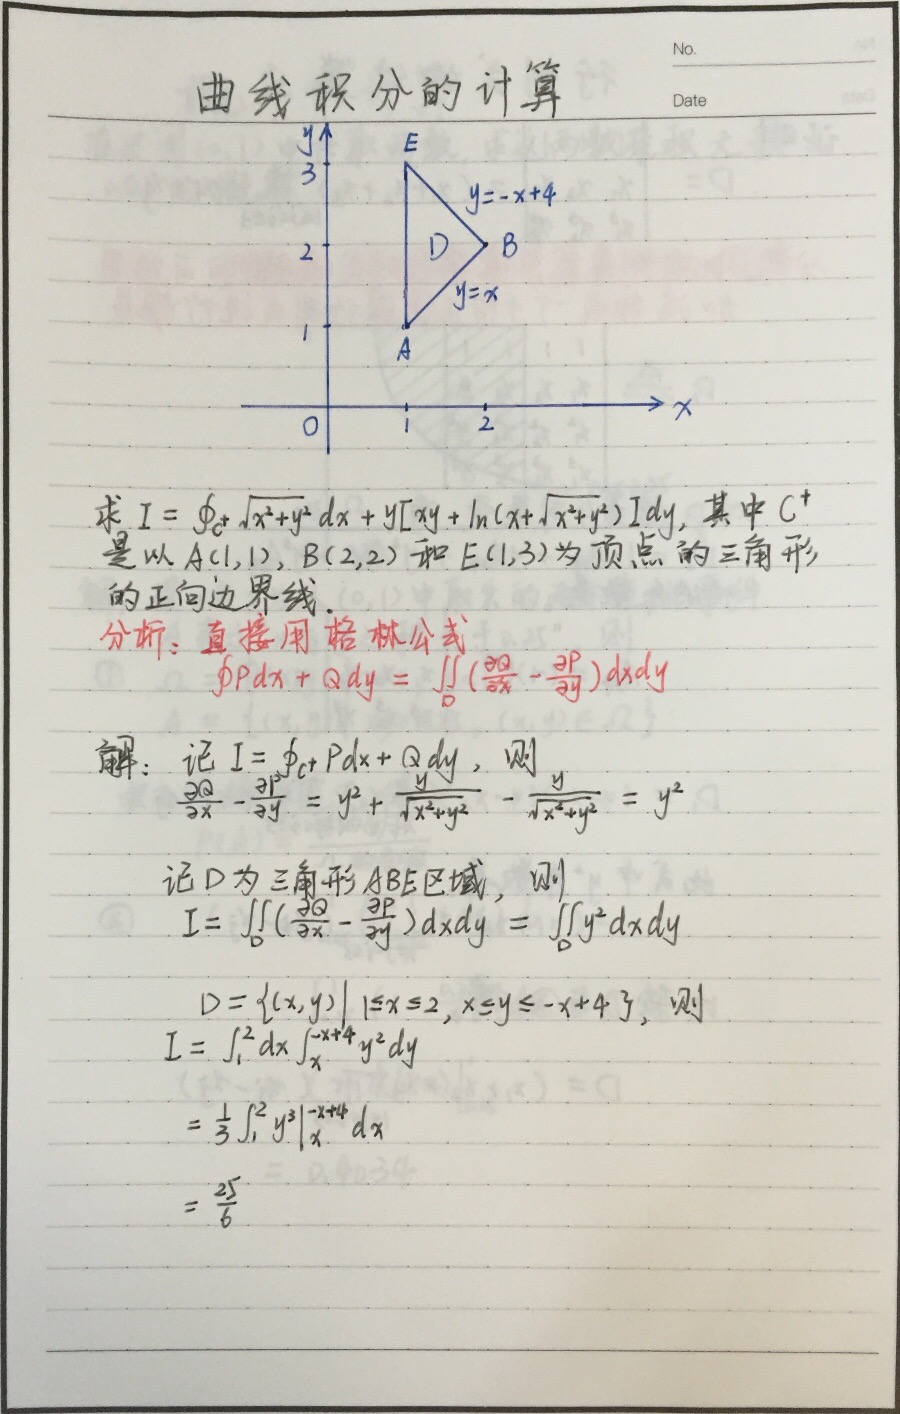 No.
Date
曲线积分的计算
y
E
3
y=-x+4
2
D
B
y=x
1
A
0
1
2
x
求 I = ∮_{C⁺} √(x²+y²) dx + y[xy + ln(x+√(x²+y²))]dy, 其中 C⁺
是以 A(1,1), B(2,2) 和 E(1,3) 为顶点的三角形
的正向边界线.
分析: 直接用格林公式
∮Pdx + Qdy = ∬_D (∂Q/∂x - ∂P/∂y) dxdy
解: 记 I = ∮_{C⁺} Pdx + Qdy, 则
∂Q/∂x - ∂P/∂y = y² + y/√(x²+y²) - y/√(x²+y²) = y²
记 D 为三角形 ABE 区域, 则
I = ∬_D (∂Q/∂x - ∂P/∂y) dxdy = ∬_D y² dxdy
D = {(x,y)| 1≤x≤2, x≤y≤-x+4}, 则
I = ∫₁² dx ∫_x^{-x+4} y² dy
= 1/3 ∫₁² y³|_x^{-x+4} dx
= 25/6